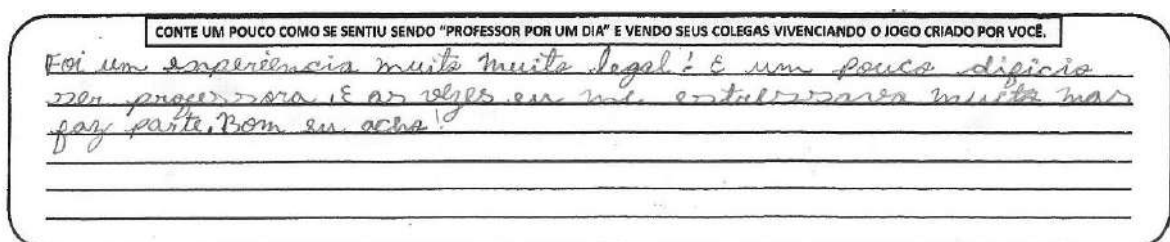 CONTE UM POUCO COMO SE SENTIU SENDO "PROFESSOR POR UM DIA" E VENDO SEUS COLEGAS VIVENCIANDO O JOGO CRIADO POR VOCÊ.
Foi um experiência muito muito legal! É um pouco difício
ser professora. E as vezes eu me estressava muito mas
faz parte. Bom eu acho!